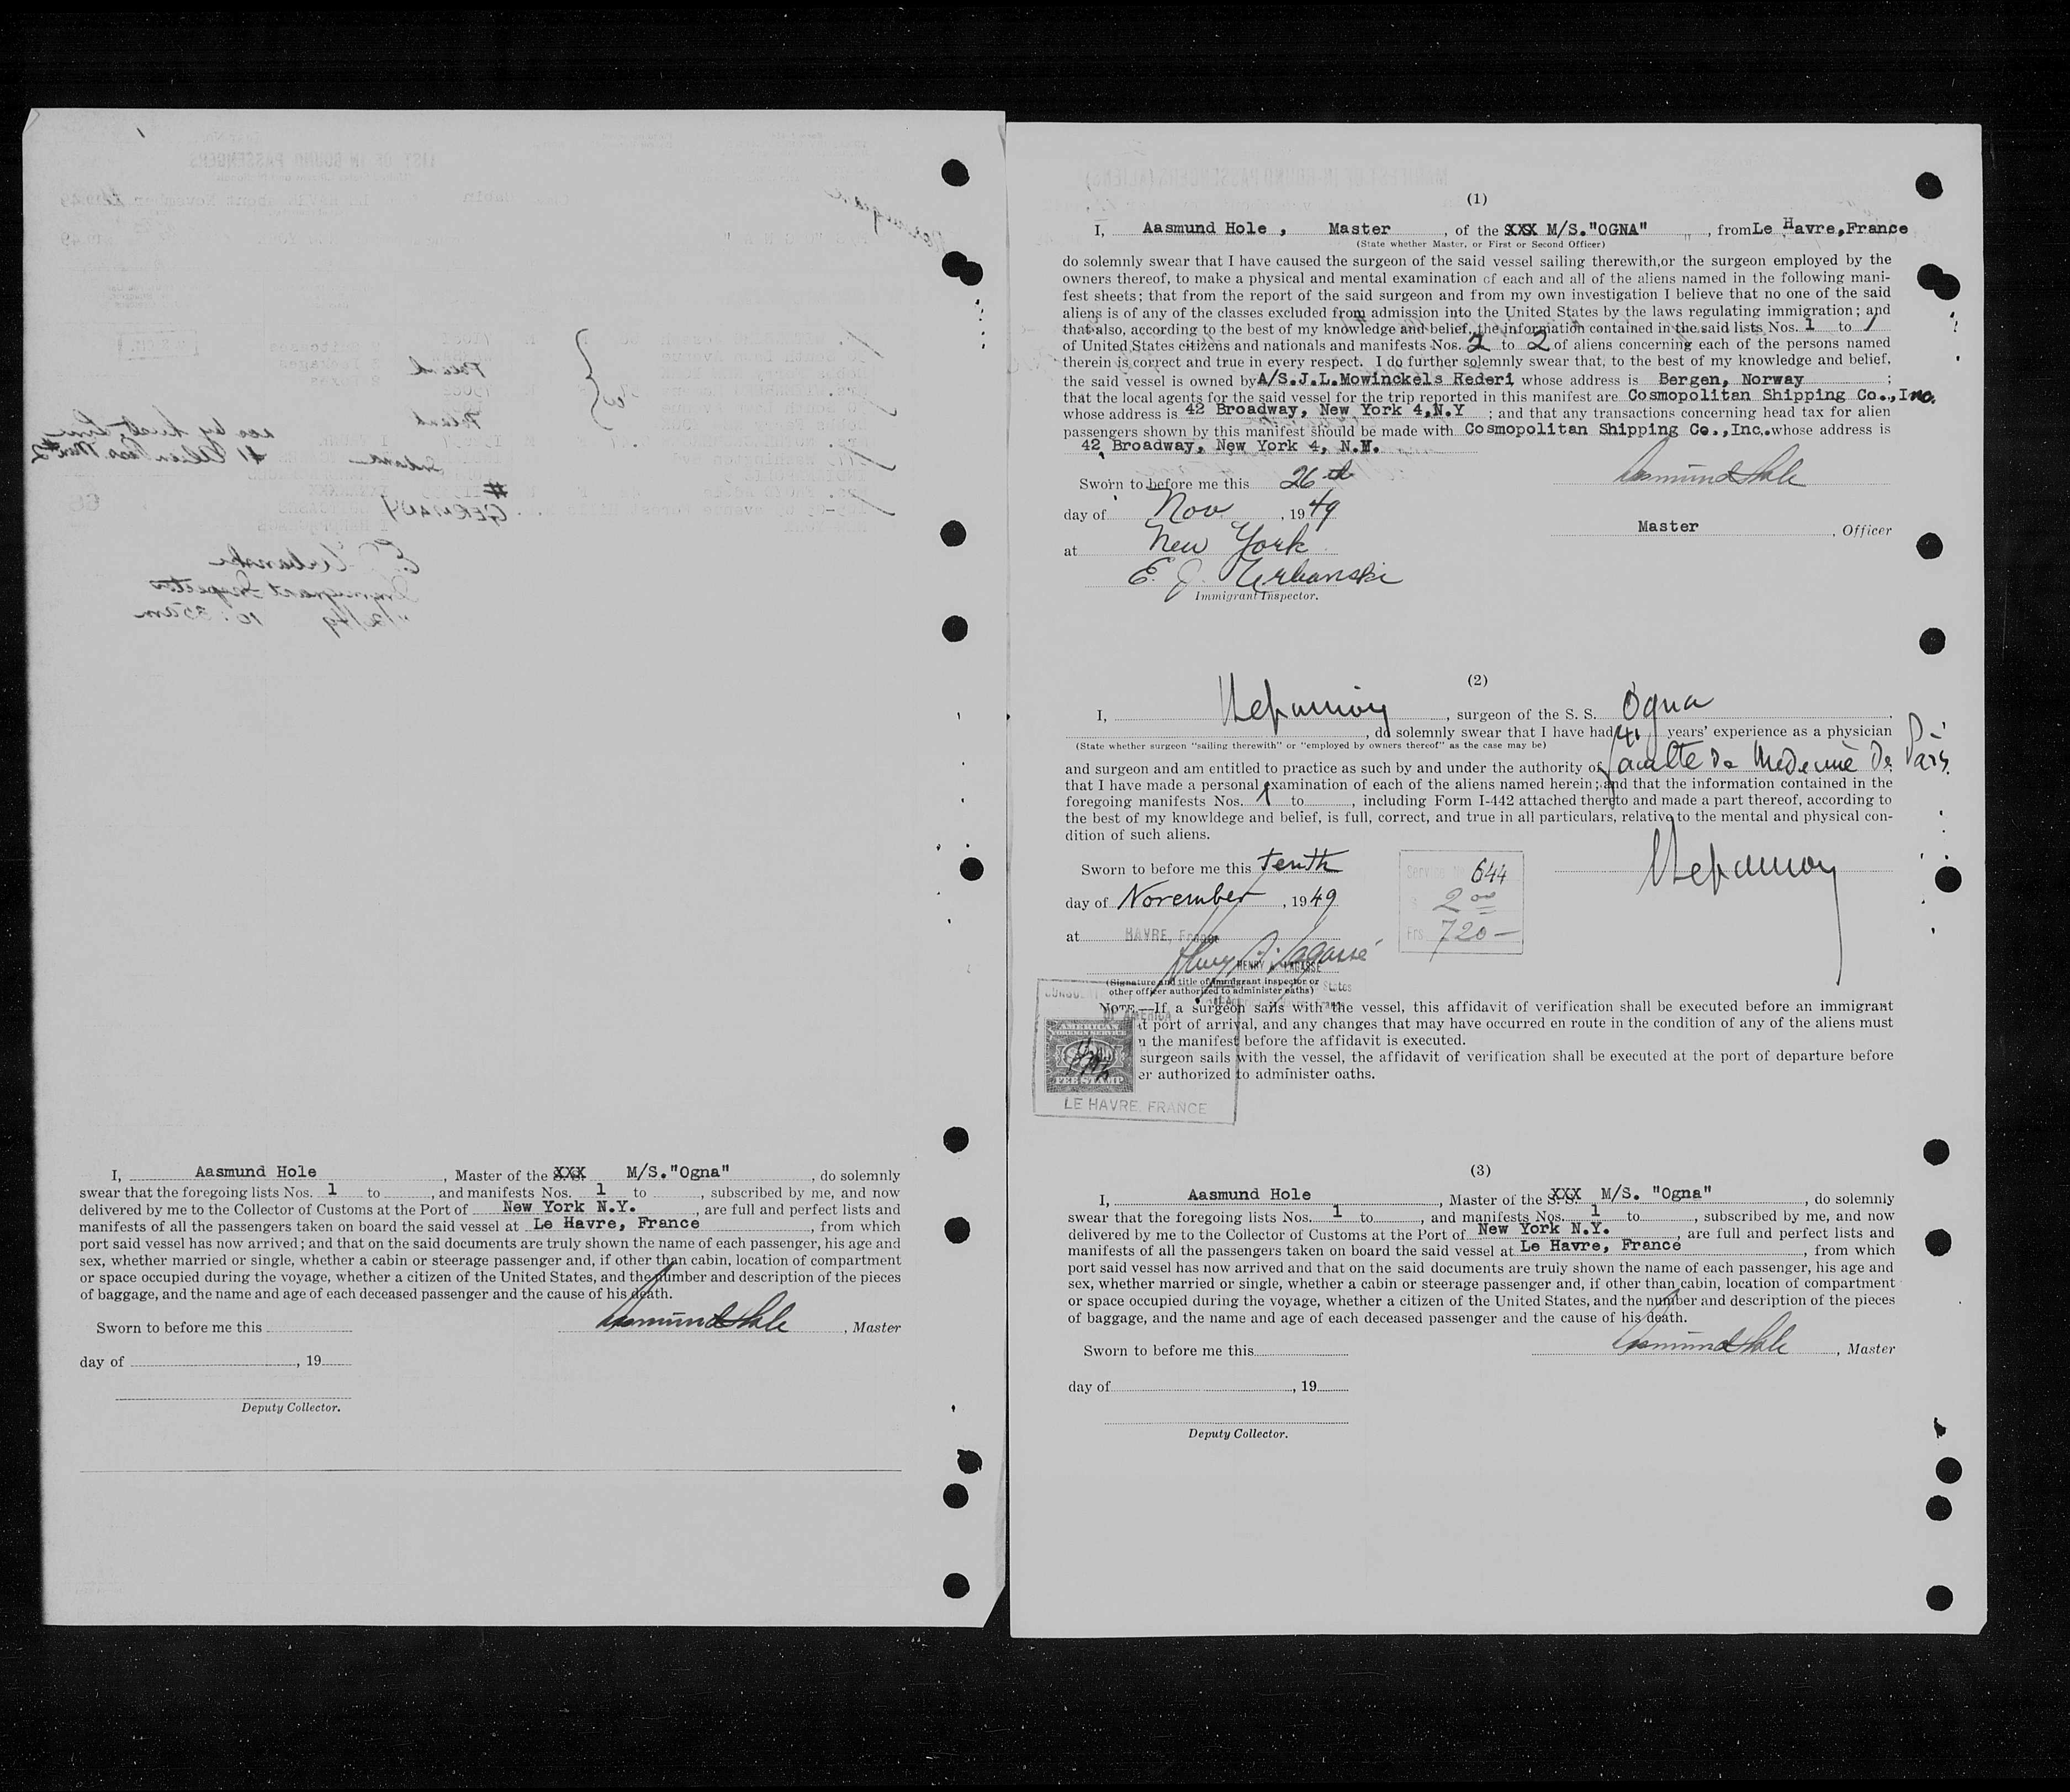 I, Aasmund Hole , Master of the XXX M/S."Ogna" , do solemnly
swear that the foregoing lists Nos. 1 to , and manifests Nos. 1 to , subscribed by me, and now
delivered by me to the Collector of Customs at the Port of New York N.Y. , are full and perfect lists and
manifests of all the passengers taken on board the said vessel at Le Havre, France , from which
port said vessel has now arrived; and that on the said documents are truly shown the name of each passenger, his age and
sex, whether married or single, whether a cabin or steerage passenger and, if other than cabin, location of compartment
or space occupied during the voyage, whether a citizen of the United States, and the number and description of the pieces
of baggage, and the name and age of each deceased passenger and the cause of his death.
Sworn to before me this
Aasmund Hole , Master
day of , 19
Deputy Collector.
(1)
I, Aasmund Hole , Master , of the XXX M/S."OGNA" , from Le Havre,France
(State whether Master, or First or Second Officer)
do solemnly swear that I have caused the surgeon of the said vessel sailing therewith,or the surgeon employed by the
owners thereof, to make a physical and mental examination of each and all of the aliens named in the following mani-
fest sheets; that from the report of the said surgeon and from my own investigation I believe that no one of the said
aliens is of any of the classes excluded from admission into the United States by the laws regulating immigration; and
that also, according to the best of my knowledge and belief, the information contained in the said lists Nos. 1 to 1
of United States citizens and nationals and manifests Nos. 2 to 2 of aliens concerning each of the persons named
therein is correct and true in every respect. I do further solemnly swear that, to the best of my knowledge and belief,
the said vessel is owned by A/S.J.L.Mowinckels Rederi whose address is Bergen, Norway ;
that the local agents for the said vessel for the trip reported in this manifest are Cosmopolitan Shipping Co.,Inc.
whose address is 42 Broadway, New York 4,N.Y ; and that any transactions concerning head tax for alien
passengers shown by this manifest should be made with Cosmopolitan Shipping Co.,Inc. whose address is
42 Broadway, New York 4, N.Y.
Sworn to before me this 26th
Aasmund Hole
day of Nov , 1949
Master , Officer
at New York
E. J. Urbanski
Immigrant Inspector.
(2)
I, , surgeon of the S. S. Ogna
, do solemnly swear that I have had 41 years' experience as a physician
(State whether surgeon "sailing therewith" or "employed by owners thereof" as the case may be)
and surgeon and am entitled to practice as such by and under the authority of faculte de Medecine de Paris
that I have made a personal examination of each of the aliens named herein; and that the information contained in the
foregoing manifests Nos. 1 to , including Form I-442 attached thereto and made a part thereof, according to
the best of my knowldege and belief, is full, correct, and true in all particulars, relative to the mental and physical con-
dition of such aliens.
Sworn to before me this tenth
Service Nº 644
day of November , 1949
2 00
at HAVRE, France
Frs 720—
Henry A. Lagassé
HENRY A. LAGASSE
(Signature and title of immigrant inspector or
other officer authorized to administer oaths)
NOTE.—If a surgeon sails with the vessel, this affidavit of verification shall be executed before an immigrant
at port of arrival, and any changes that may have occurred en route in the condition of any of the aliens must
n the manifest before the affidavit is executed.
surgeon sails with the vessel, the affidavit of verification shall be executed at the port of departure before
er authorized to administer oaths.
OF AMERICA
AMERICAN
FOREIGN SERVICE
FEE STAMP
LE HAVRE, FRANCE
(3)
I, Aasmund Hole , Master of the XXX M/S. "Ogna" , do solemnly
swear that the foregoing lists Nos. 1 to , and manifests Nos. 1 to , subscribed by me, and now
delivered by me to the Collector of Customs at the Port of New York N.Y. , are full and perfect lists and
manifests of all the passengers taken on board the said vessel at Le Havre, France , from which
port said vessel has now arrived and that on the said documents are truly shown the name of each passenger, his age and
sex, whether married or single, whether a cabin or steerage passenger and, if other than cabin, location of compartment
or space occupied during the voyage, whether a citizen of the United States, and the number and description of the pieces
of baggage, and the name and age of each deceased passenger and the cause of his death.
Sworn to before me this
Aasmund Hole , Master
day of , 19
Deputy Collector.